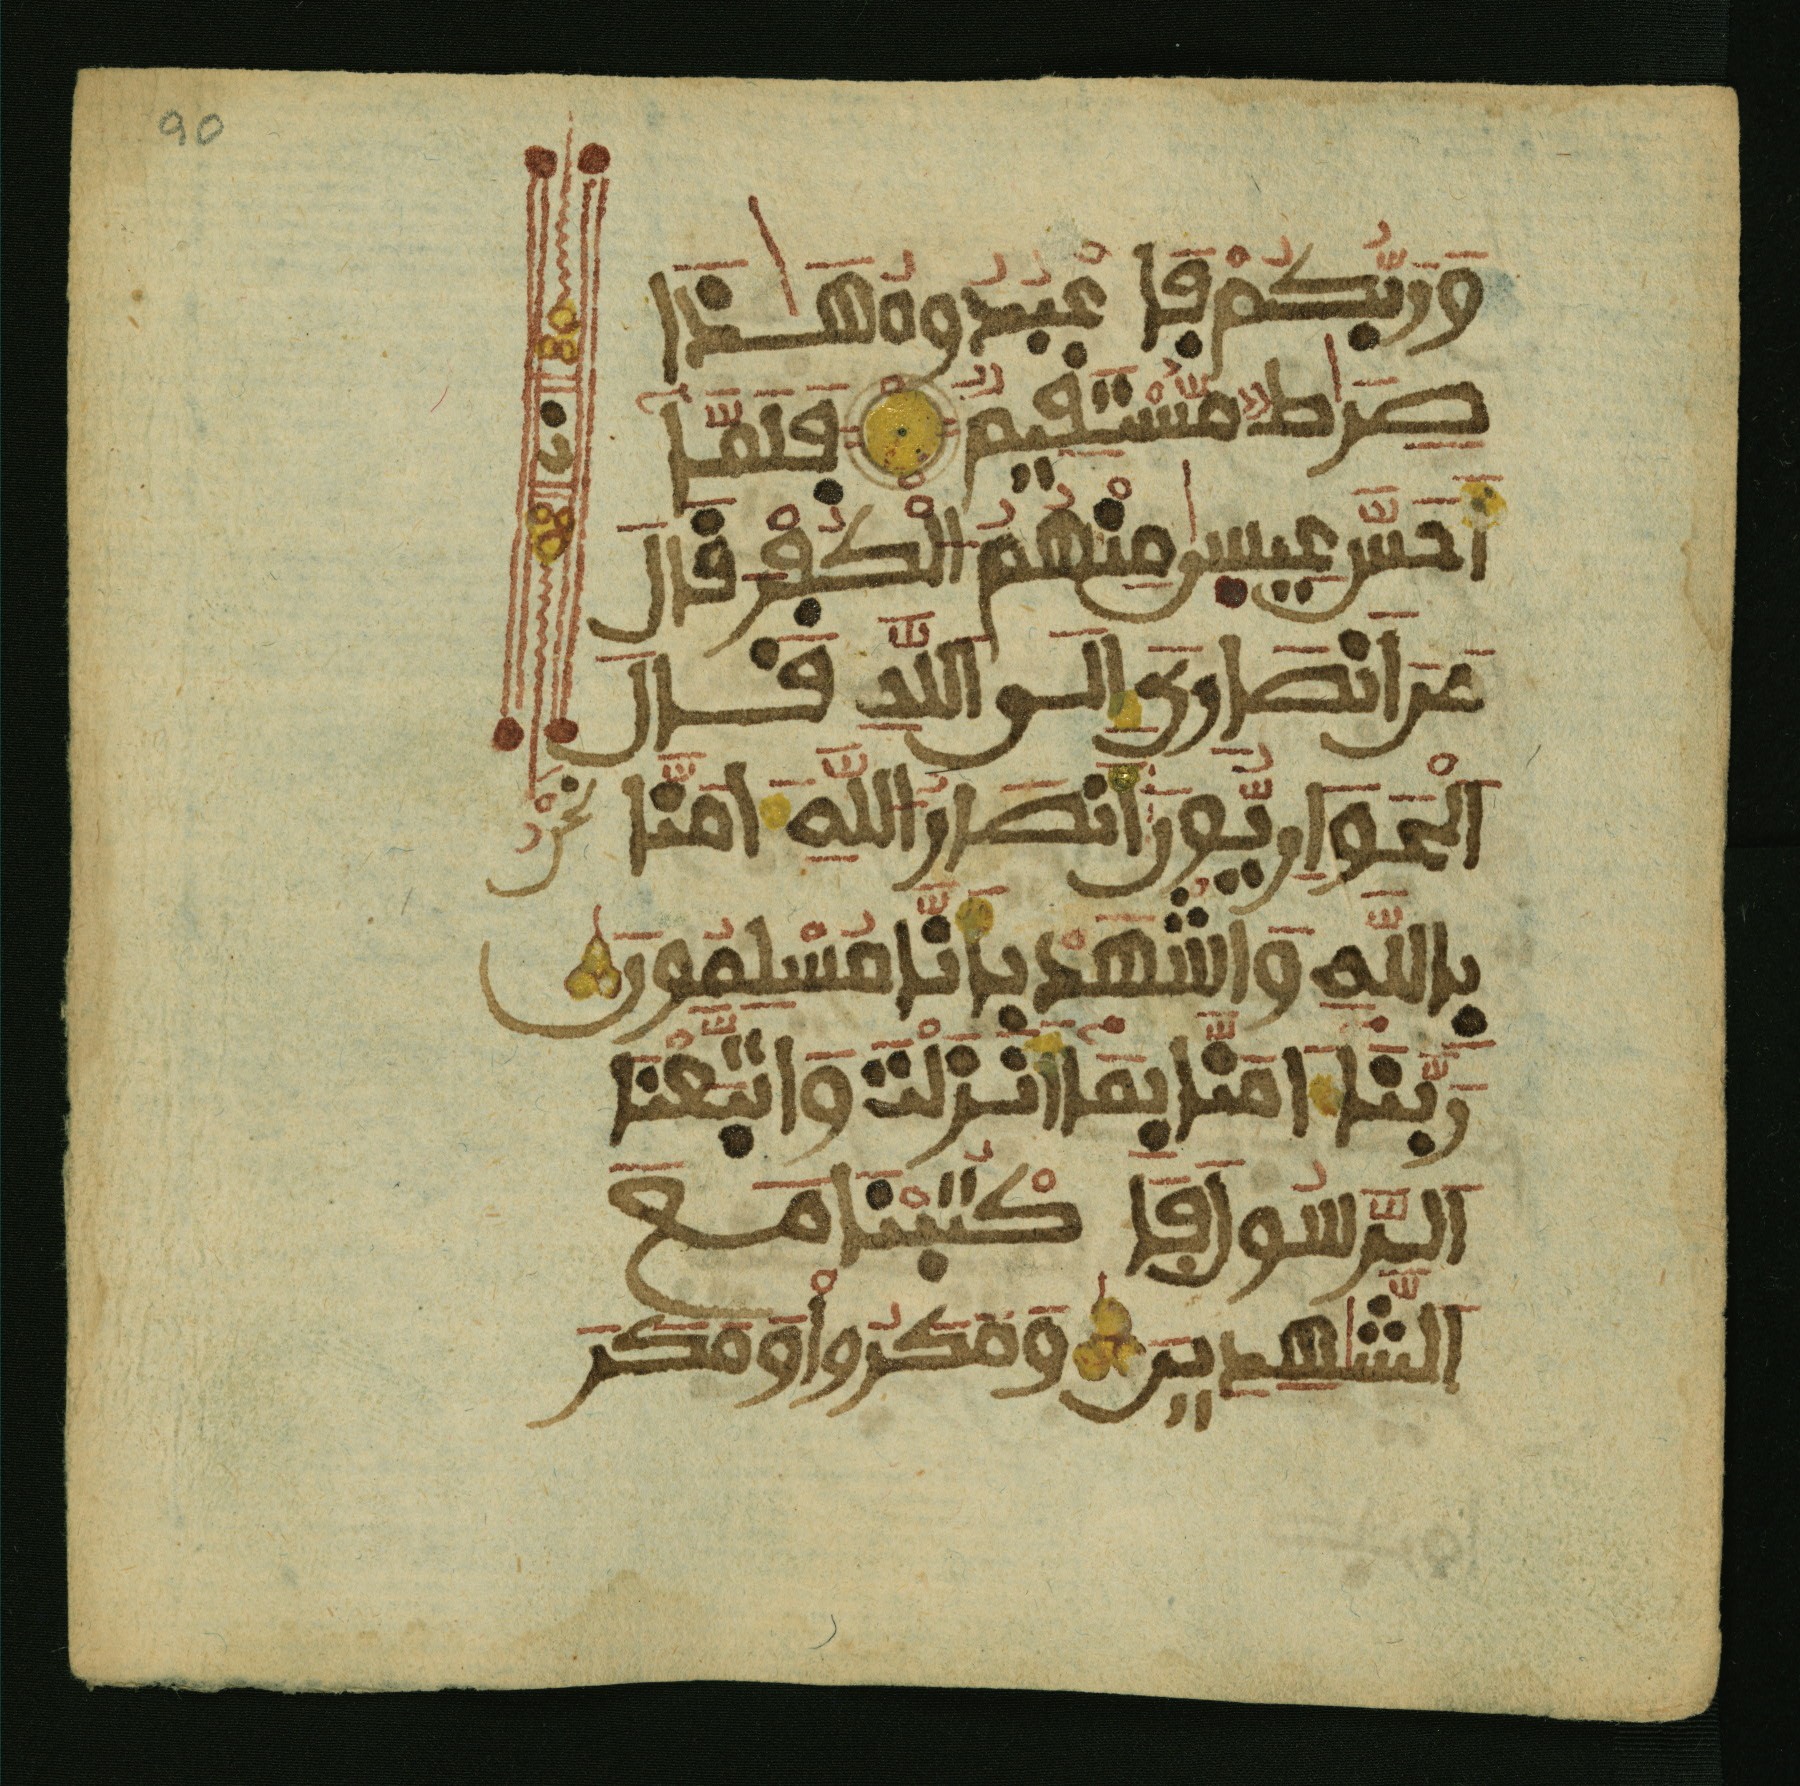 90
وَرَبُّكُمْ فَاعْبُدُوهُ هَٰذَا
صِرَٰطٌ مُّسْتَقِيمٌ فَلَمَّا
أَحَسَّ عِيسَىٰ مِنْهُمُ الْكُفْرَ قَالَ
مَنَ انصَارِيَ إِلَى اللَّهِ قَالَ
الْحَوَارِيُّونَ أَنصَارُ اللَّهِ ءَامَنَّا
نَحْنُ
بِاللَّهِ وَاشْهَدْ بِأَنَّا مُسْلِمُونَ
رَبَّنَا ءَامَنَّا بِمَا أَنزَلْتَ وَاتَّبَعْنَا
الرَّسُولَ فَاكْتُبْنَا مَعَ
الشَّٰهِدِينَ وَمَكَرُواْ وَمَكَرَ